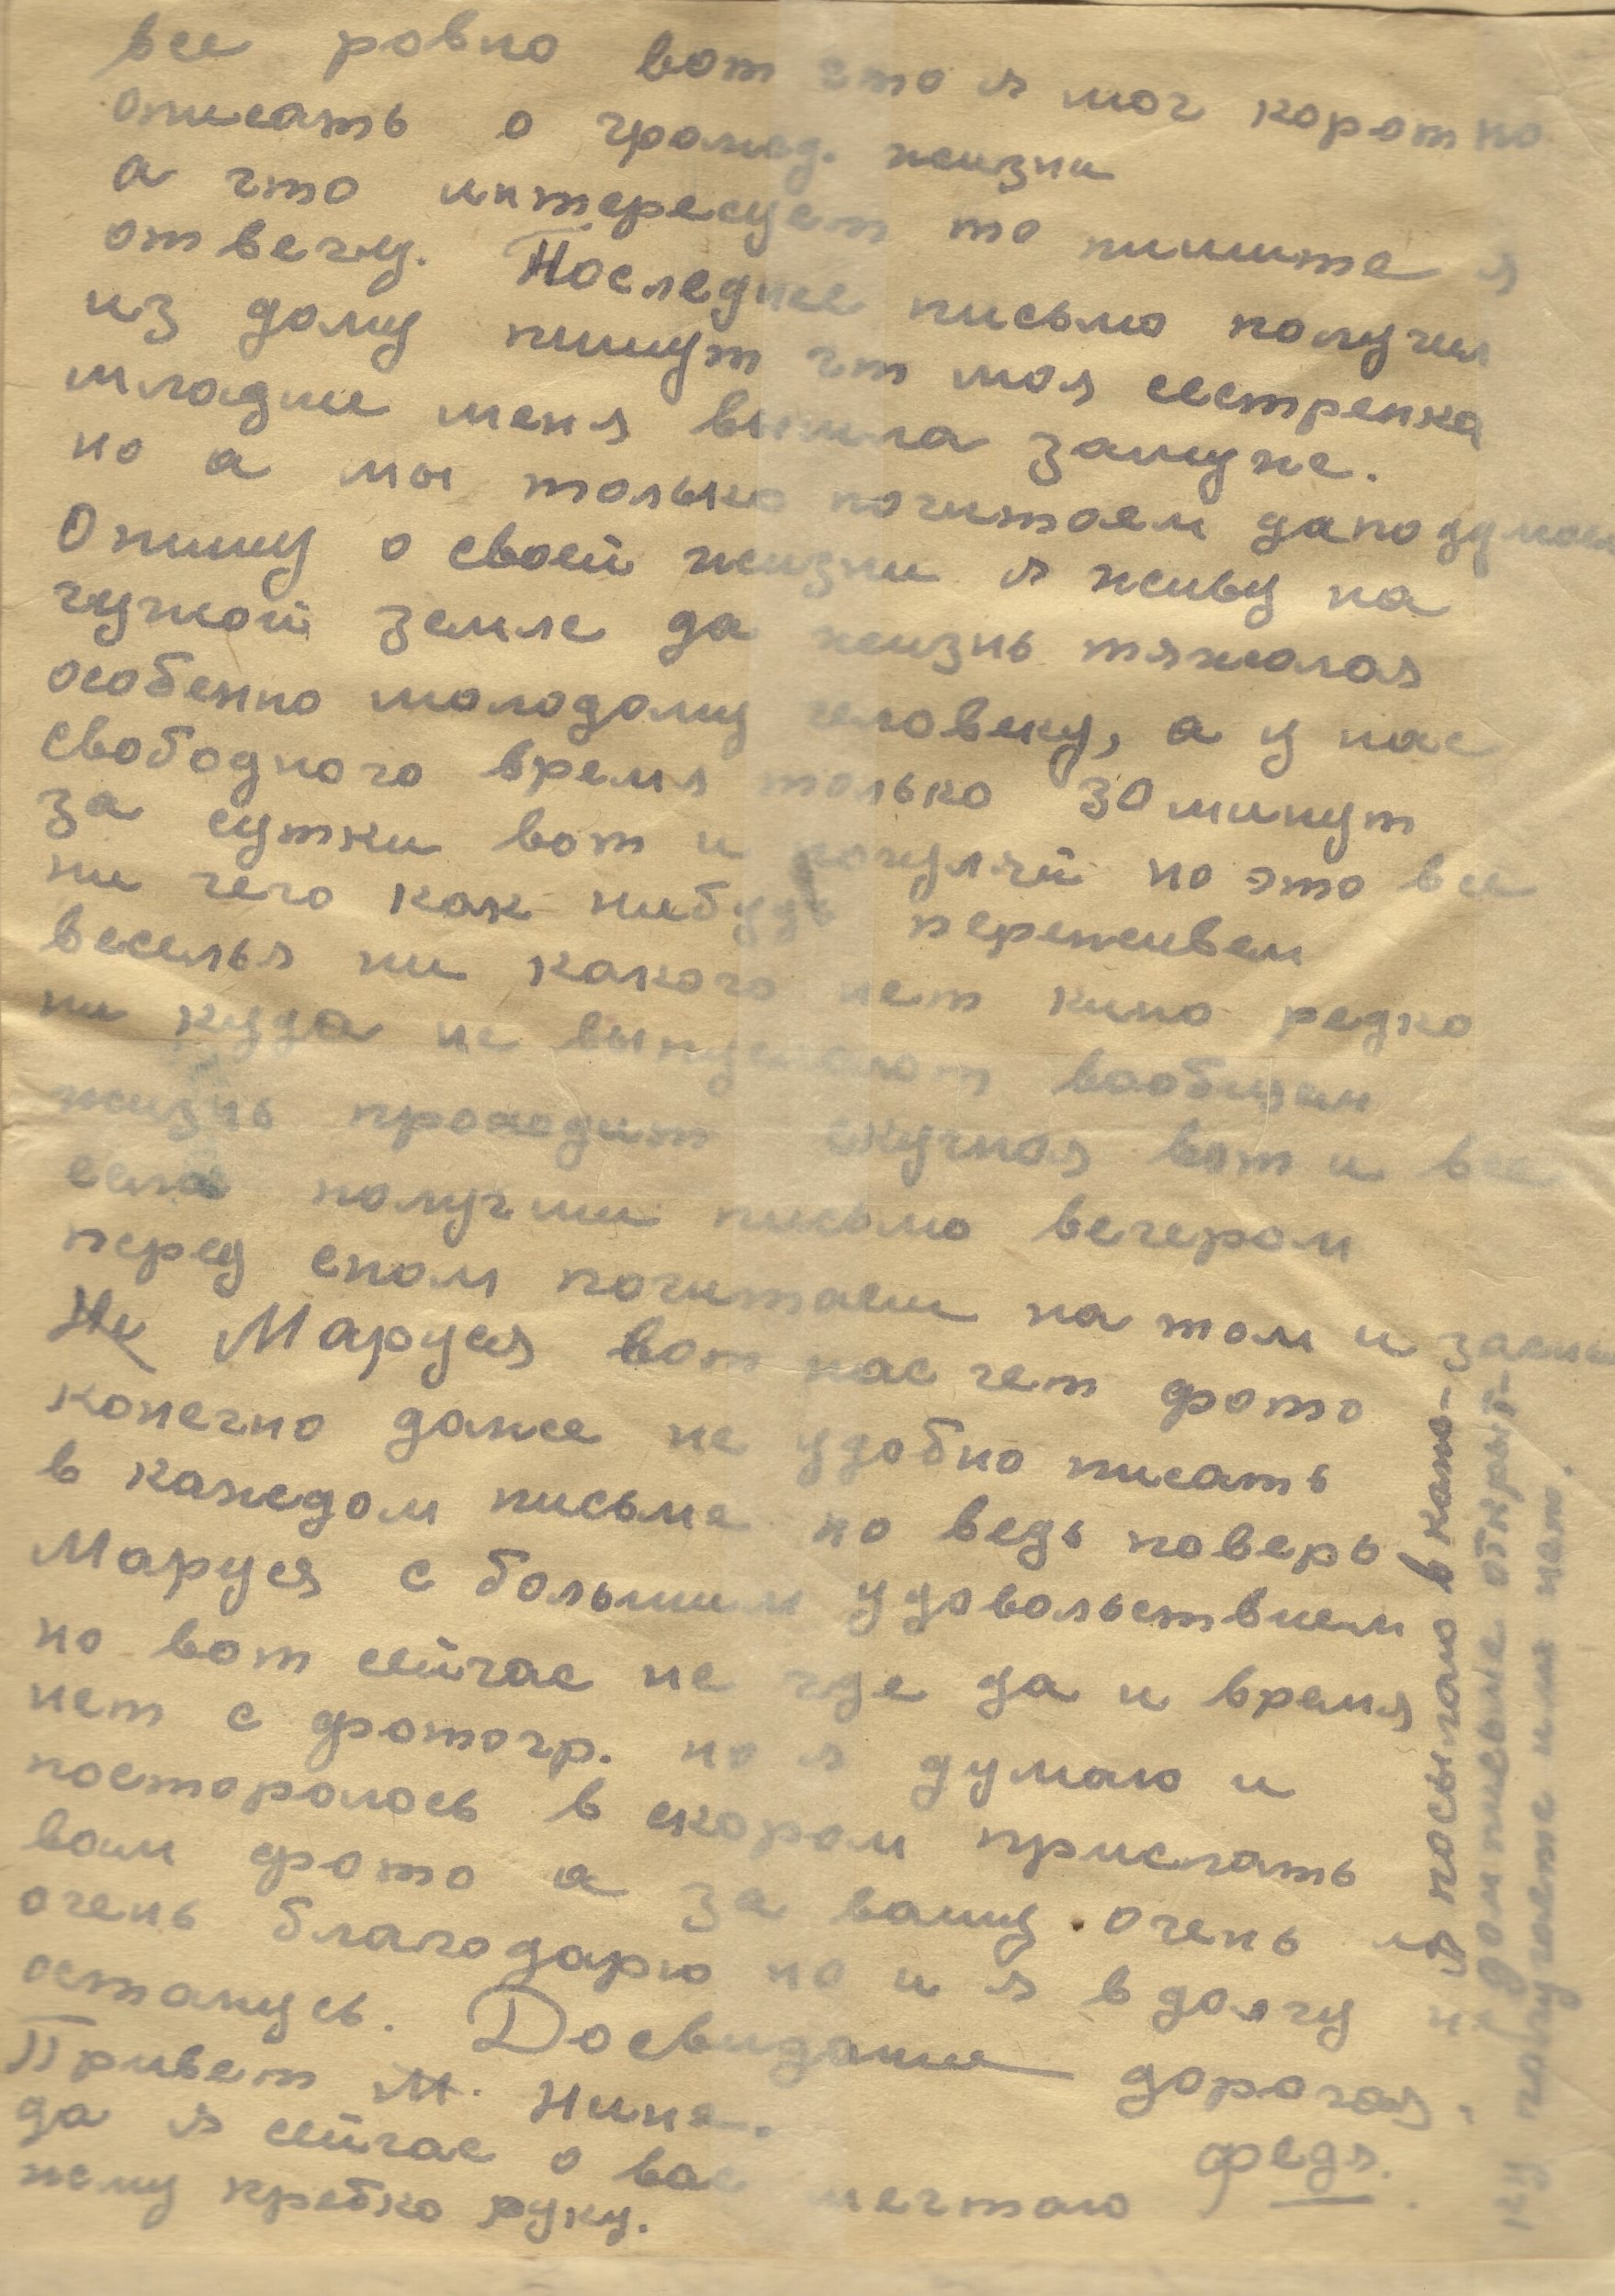 все ровно вот что я мог коротко
описать о громад. жизни
а что интересует то пишите я
отвечу. Последнее письмо получил
из дому пишут чт моя сестренка
младше меня вышла замуже.
но а мы только почитаем да подумаем
Опишу о своей жизни я живу на
чужой земле да жизнь тяжолая
особенно молодому человеку, а у нас
свободного время только 30 минут
за сутки вот и погуляй но это все
ни чего как нибудь переживем
веселья ни какого нет кино редко
ни куда не выпускают вообщем
жизнь проходит скучная вот и все
если получиш письмо вечером
перед сном почитаеш на том и
Ну Маруся вот нас чет фото
конечно даже не удобно писать
в каждом письме но ведь поверь
Маруся с большим удовольствием
но вот сейчас не где да и время
нет с фотогр. но я думаю и
посторолось в скором прислать
вам фото а за вашу очень
очень благодарю но и я в долгу не
останусь. Досвидание дорогая.
Привет М. Нине.
федя.
да я сейчас о вас мечтаю
жму крепко руку.
я посылаю в каж-
дом письме открыт-
ку получаите или нет.